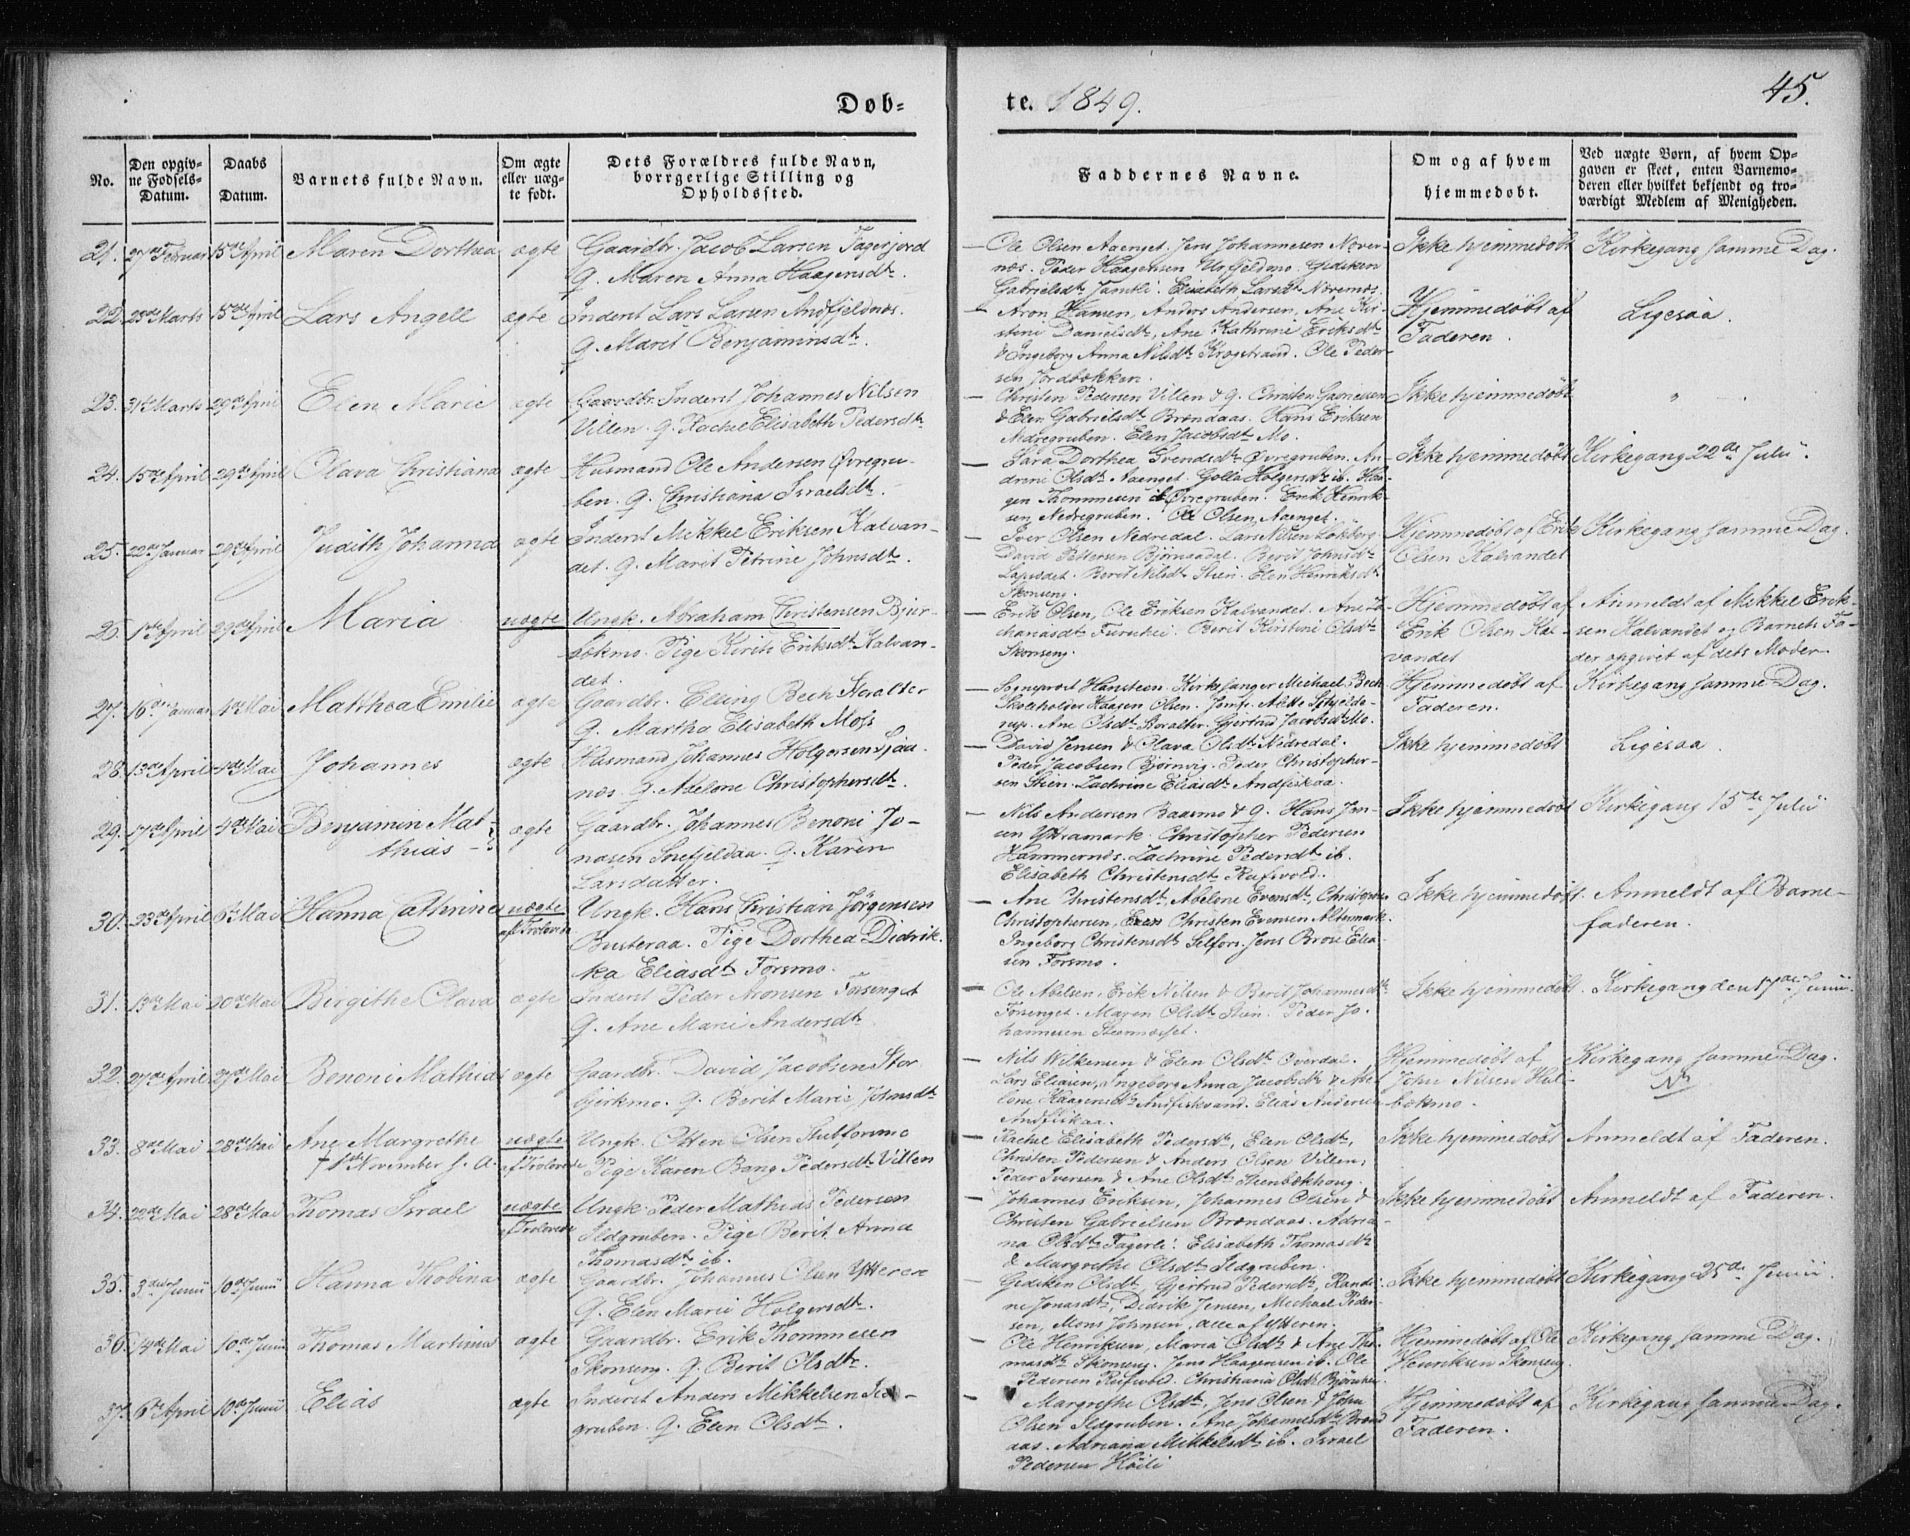 Døb-
te. 1849.
45.
No.
Den opgiv-
ne Fødsels-
Datum.
Daabs
Datum.
Barnets fulde Navn.
Om ægte
eller uæg-
te født.
Dets Forældres fulde Navn,
borgerlige Stilling og
Opholdssted.
Faddernes Navne.
Om og af hvem
hjemmedøbt.
Ved uægte Børn, af hvem Op-
gaven er skeet, enten Barnemo-
deren eller hvilket bekjendt og tro-
værdigt Medlem af Menigheden.
21. 27de Februar 15de April Maren Dorthea ægte Gaardbr. Jacob Larsen Fagerjord
G. Maren Anna Haagensdtr.
Ole Olsen Aaenget. Jens Johannesen Næver-
næs. Peder Haagensen Urfjeldmo. Gidsken
Gabrielsdtr Jamtli. Elisabeth Larsdtr Nævernæs.
Ikke hjemmedøbt Kirkegang samme Dag.
22. 23de Marts 15de April Lars Angell ægte Inderst Lars Larsen Andfjeldnæs.
G. Marit Benjaminsdtr.
Aron Hansen, Anders Andersen, Ane Kir-
stine Danielsdtr, Ane Kathrine Eriksdtr
& Ingeborg Anna Nilsdtr Krogstrand. Ole Peder-
sen Jordbækken.
Hjemmedøbt af
Faderen.
Ligesaa.
23. 31te Marts 29de April Elen Marie ægte Gaardbr. Inderst Johannes Nilsen
Villen. G. Rachel Elisabeth Pedersdtr
Christen Pedersen Villen & G. Christen Gabrielsen
& Elen Gabrielsdtr Brændaas. Hans Eriksen
Nedregruben. Elen Jacobsdtr Mo.
Ikke hjemmedøbt "
24. 15de April 29de April Olava Christiana ægte Husmand Ole Andersen Øvregru-
ben. G. Christiana Israelsdtr.
Sara Dorthea Svendsdtr Øvregruben. An-
drine Olsdtr Aaenget. Golla Holgersdtr ib. Haa-
gen Thommesen Øvregruben. Erik Henrik-
sen Nedregruben. Ole Olsen Aaenget.
Ikke hjemmedøbt Kirkegang 22de Julii.
25. 22de Januar 29de April Judith Johanna ægte Inderst Mikkel Eriksen Kalvan-
det. G. Marit Petrine Johnsdtr.
Iver Olsen Nedredal. Lars Nilsen
David Pettersen Bjørnaadal. Berit Johnsdtr
Berit Nilsdtr Stien. Elen Henriksdtr
Skonseng.
Hjemmedøbt af Erik
Olsen Kalvandet
Kirkegang samme Dag.
26. 1ste April 29de April Maria uægte Ungk. Abraham Christensen Bjur-
bækmo. Pige Kirsti Eriksdtr Kalvan-
det.
Erik Olsen, Ole Eriksen Kalvandet. Ane Jo-
hanasdtr Furuhei. Berit Kirstine Olsdtr
Skonseng.
Hjemmedøbt af
Erik Olsen Kal-
vandet
Anmeldt af Mikkel Erik-
sen Kalvandet og Barnets Fa-
der opgivet af dets Moder.
27. 16de Januar 4de Mai Matthea Emilie ægte Gaardbr. Elling Bech Storalter
G. Martha Elisabeth Moss
Sogneprest Hansteen. Kirkesanger Michael Bech
Skoleholder Haagen Olsen. Jomfr. Mette
Ane Olsdtr Storalter. Gjertrud Jacobsdtr Mo.
Hjemmedøbt af
Faderen.
Kirkegang samme Dag.
28. 13de April 4de Mai Johannes ægte Husmand Johannes Holgersen Sjøu-
næs. G. Abelone Christophersdtr.
David Jensen & Olava Olsdtr Nedredal.
Peder Jacobsen Bjørnvig. Peder Christopher-
sen Stien. Zachrine Eliasdtr Andfiskaa.
Ikke hjemmedøbt Ligesaa
29. 17de April 4de Mai Benjamin Mat-
thias ægte Gaardbr. Johannes Benoni Jo-
nasen Snefjeldaa. G. Karen
Larsdatter.
Nils Andersen Baasmo & G. Hans Jen-
sen Yttramark. Christopher Pedersen
Hammernæs. Zachrine Pedersdtr ib.
Elisabeth Christensdtr Rufsvold.
Ikke hjemmedøbt Kirkegang 15de Julii
30. 23de April 6te Mai Hanna Cathrine uægte
af Trolovede
Ungk. Hans Christian Jørgensen
Busteraa. Pige Dorthea Didrik-
ka Eliasdtr Forsmo.
Ane Christensdtr, Abelone Evensdtr, Christopher
Christophersen, Christen Evensen Altermark.
Ingeborg Christensdtr Selfors. Jens Brose Elia-
sen Forsmo.
Ikke hjemmedøbt. Anmeldt af Barne-
faderen.
31. 13de Mai 20de Mai Birgithe Olava ægte Inderst Peder Aronsen Forsenget
G. Ane Marie Andersdtr
Ole Abelsen, Erik Nilsen & Berit Johannesdtr
Forsenget. Maren Olsdtr Stien. Peder Jo-
hannesen Stormosset.
Ikke hjemmedøbt. Kirkegang den 17de Junii.
32. 27de April 27de Mai Benoni Mathias ægte Gaardbr. David Jacobsen Stor
bjerkmo. G. Berit Marie Johnsdtr
Nils Wilkensen & Elen Olsdtr Overdal.
Lars Eliasen, Ingeborg Anna Jacobsdtr & Abe-
lone Haagensdtr Andfiskvand. Elias Andersen
Andfiskaa.
Hjemmedøbt af
John Nilsen Hul-
bækmo.
Kirkegang samme Dag.
33. 8de Mai 28de Mai Ane Margrethe
† 1ste November s. A.
uægte
af Trolovede
Ungk. Otten Olsen Stubforsmo
Pige Karen Bang Pedersdtr Villen
Rachel Elisabeth Pedersdtr, Elen Olsdtr,
Christen Pedersen & Anders Olsen Villen,
Peder Iversen & Ane Olsdtr Stenbækhaug.
Ikke hjemmedøbt Anmeldt af Faderen.
34. 22de Mai 28de Mai Thomas Israel uægte
af Trolovede
Ungk. Peder Mathias Pedersen
Ildgruben. Pige Berit Anna
Thomasdtr ib.
Johannes Eriksen, Johannes Olsen &
Christen Gabrielsen Brændaas. Adria-
na Olsdtr Fagerli. Elisabeth Thomasdtr
& Margrethe Olsdtr Ildgruben.
Ikke hjemmedøbt Anmeldt af Faderen.
35. 3die Junii 10de Junii Hanna Thobina ægte Gaardbr. Johannes Olsen Ytteren
G. Elen Marie Holgersdtr.
Gidsken Olsdtr, Gjertrud Pedersdtr, Rande-
ne Jonasdtr, Didrik Jensen, Michael Peder-
sen, Mons Johnsen, alle af Ytteren.
Ikke hjemmedøbt Kirkegang 25de Junii.
36. 14de Mai 10de Junii Thomas Martinus ægte Gaardbr. Erik Thommesen
Skonseng. G. Berit Olsdtr.
Ole Henriksen, Maria Olsdtr & Ane Tho-
masdtr Skonseng. Jens Haagensen ib. Ole
Pedersen Rufsvold. Christiana Olsdtr
Hjemmedøbt af Ole
Henriksen Skonseng.
Kirkegang samme Dag.
37. 6te April 10de Junii Elias ægte Inderst Anders Mikkelsen Ild-
gruben. G. Elen Olsdtr.
Margrethe Olsdtr, Jens Olsen & John
Olsen Ildgruben. Ane Johannesdtr Brænd
aas. Adriana Mikkelsdtr ib. Israel
Pedersen Høili
Hjemmedøbt af
Faderen.
Kirkegang samme Dag.